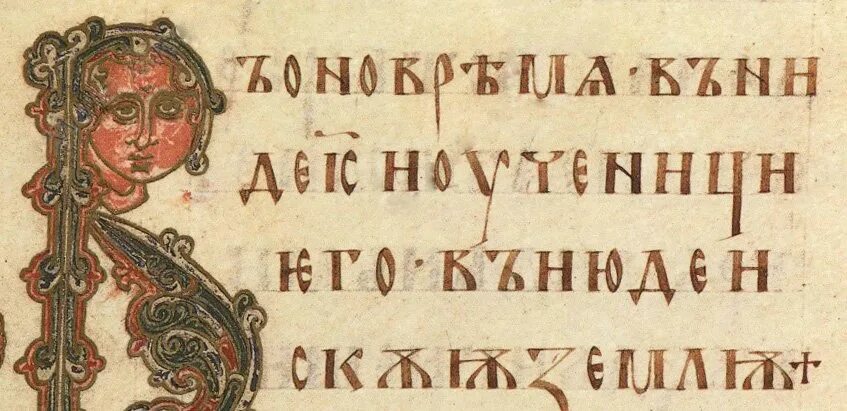 ВЪОНОВРѢМѦ·ВЪНИ
ДЕІ҃СИОУЧЕНИЦИ
ѤГО·ВЪИЮДЕИ
СКѪѬЗЕМЛѬ+